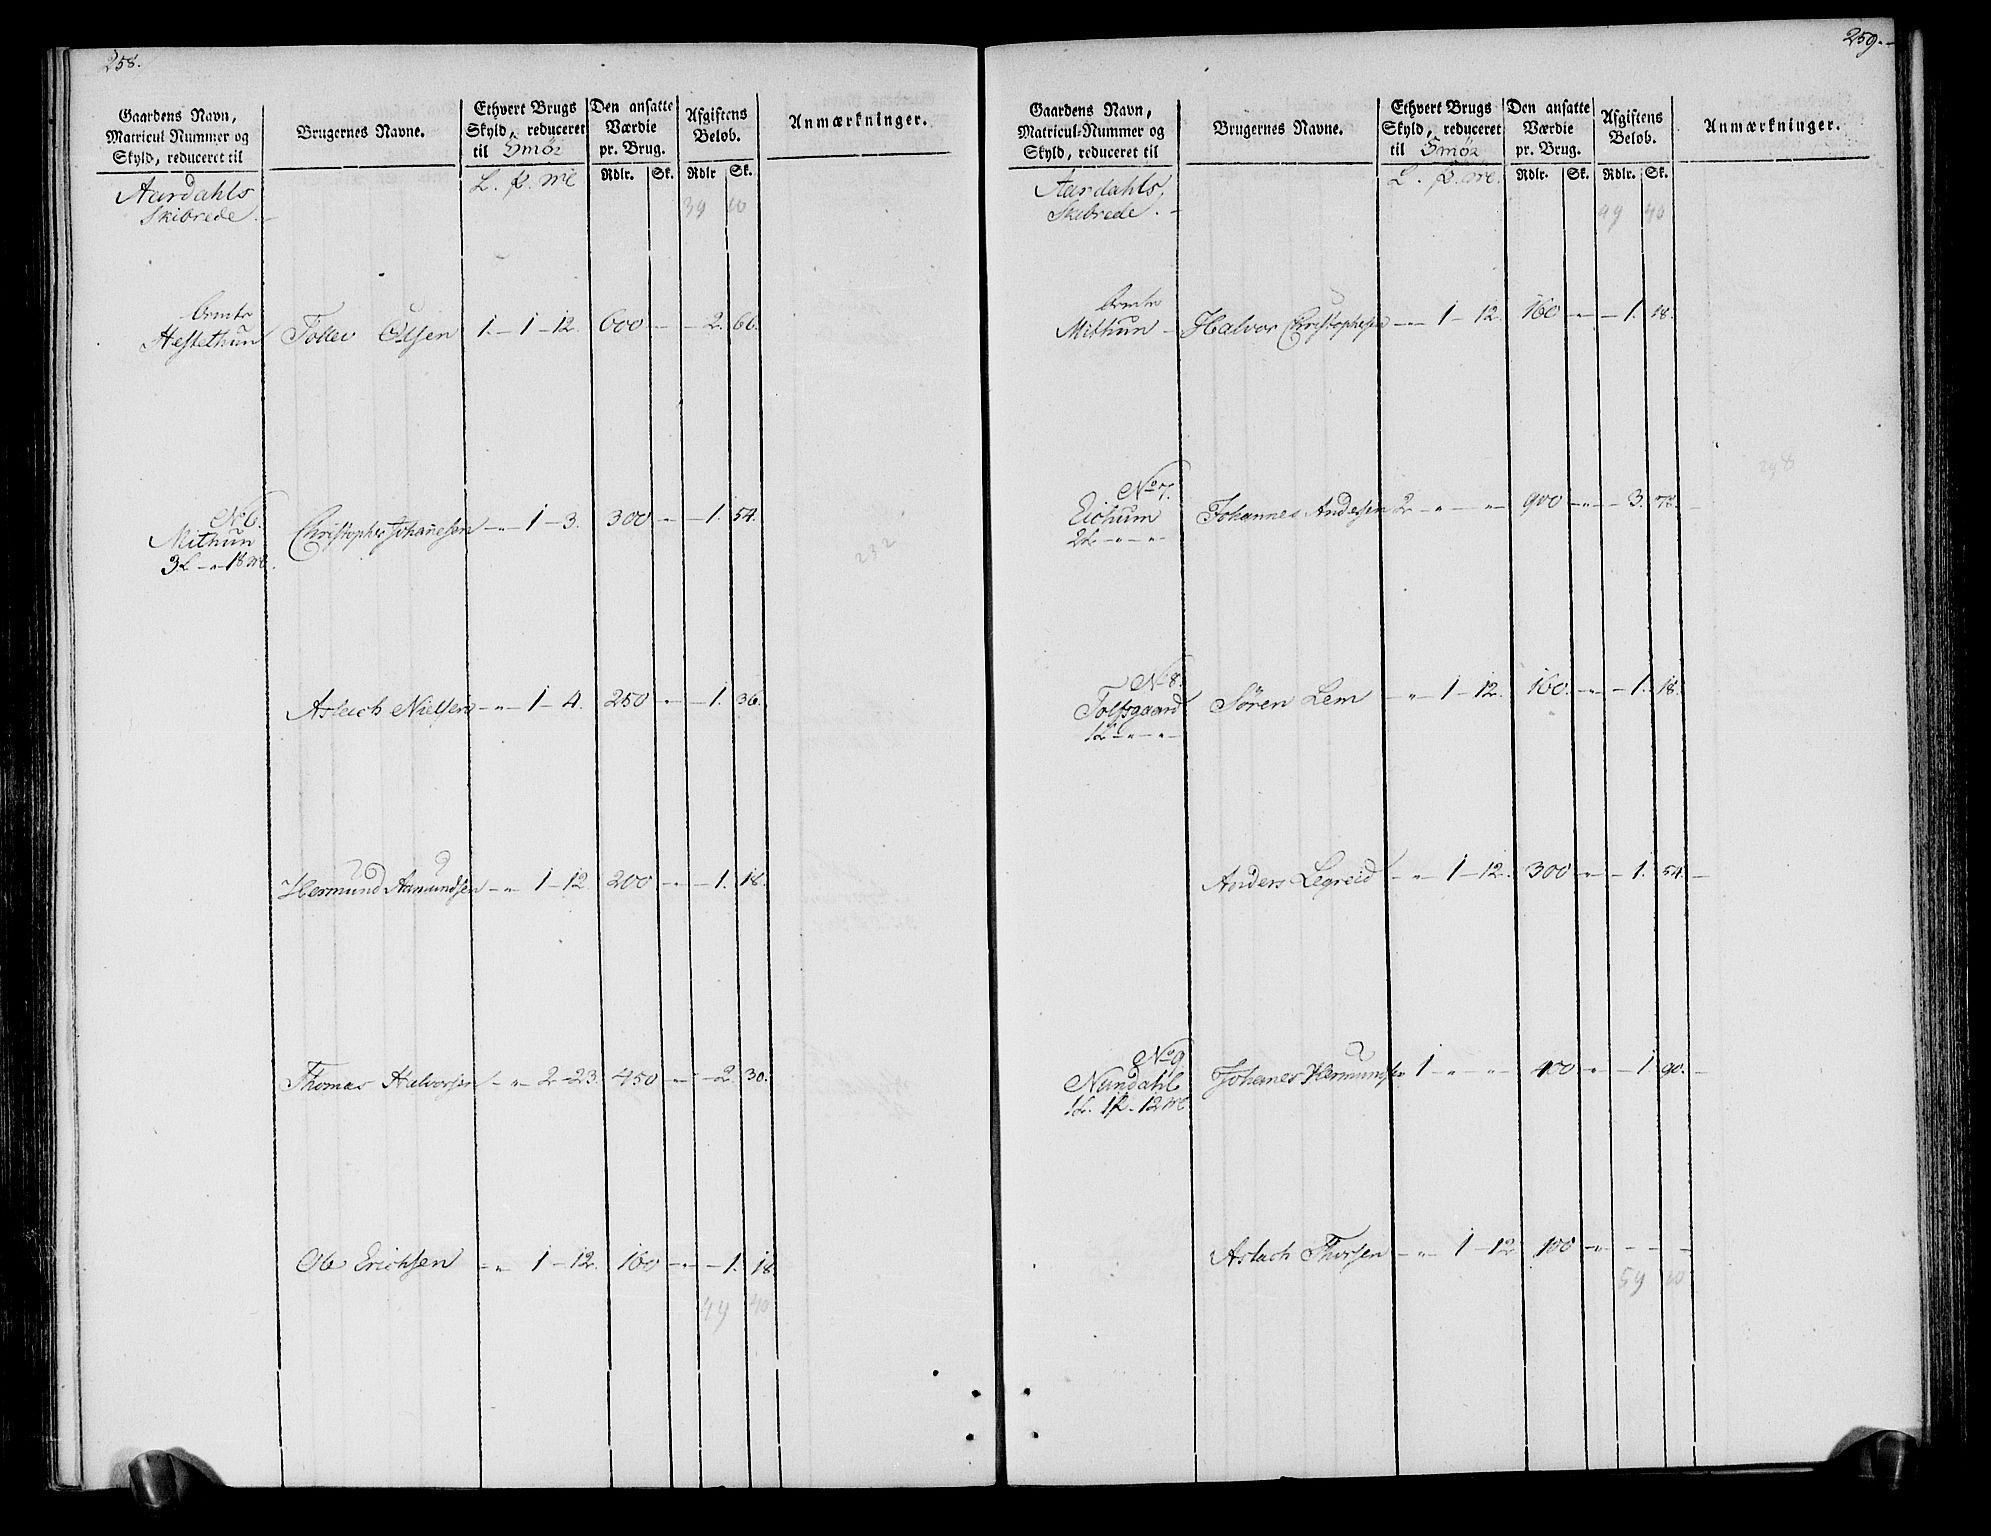 258.
Gaardens Navn,
Matricul Nummer og
Skyld, reduceret til
Brugernes Navne.
Ethvert Brugs
Skyld, reduceret
til Smør
Den ansatte
Værdie
pr. Brug.
Afgiftens
Beløb.
Anmærkninger.
L. ꝑ. mk
Rdlr. Sk. Rdlr Sk.
Aardahls
Skibrede.
39 10
bemte
Hestethun Tollev Olsen 1. - 1 - 12. 600 - - 2. 66.
No 6.
Mithun Christopher Johannesen - " - 1 - 3. 300 - " - 1. 54.
3L - " - 18 mk.
232
Aslach Nielsen - " - 1 - 4. 250 - " - 1. 36.
Hermund Aamundsen - " - 1 - 12. 200 - " - 1. 18.
Thomas Halvorsen - " - 2 - 23. 450 - " - 2. 30.
Ole Erichsen - " - 1 - 12. 160 - " - 1. 18.
49 40
259.
Gaardens Navn,
Matricul-Nummer og
Skyld, reduceret til
Brugernes Navne.
Ethvert Brugs
Skyld, reduceret
til Smør
Den ansatte
Værdie
pr. Brug.
Afgiftens
Beløb.
Anmærkninger.
L. ꝑ. mk.
Rdlr. Sk. Rdlr. Sk.
Aardahls
Skibrede.
49 40
bemte
Mithun - Halvor Christophersen - " - 1 - 12. 160 - " - 1. 18.
No 7.
Eichum Johannes Andersen 2 - " - " - 900 - " - 3. 78.
2L - " - " -
298
No 8.
Tolfsgaard Søren Lem - " - 1 - 12. 160. - " - 1. 18.
1L - " - " -
Anders Legreid - " - 1 - 12. 300 - " - 1. 54. -
No 9
Nundahl Johannes Hermundsen 1 - " - " - 400 - " - 1. 90. -
1L. 1ꝑ. 12 mk
Aslach Thorsen - " - 1 - 12 100 - " - - - -
59 10